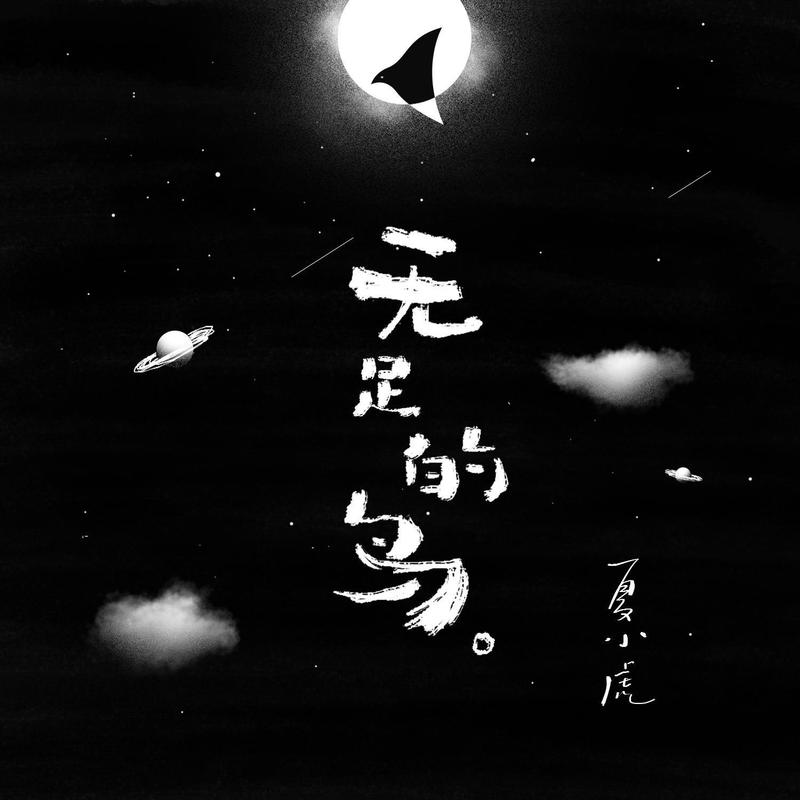 无足的鸟。
夏小虎